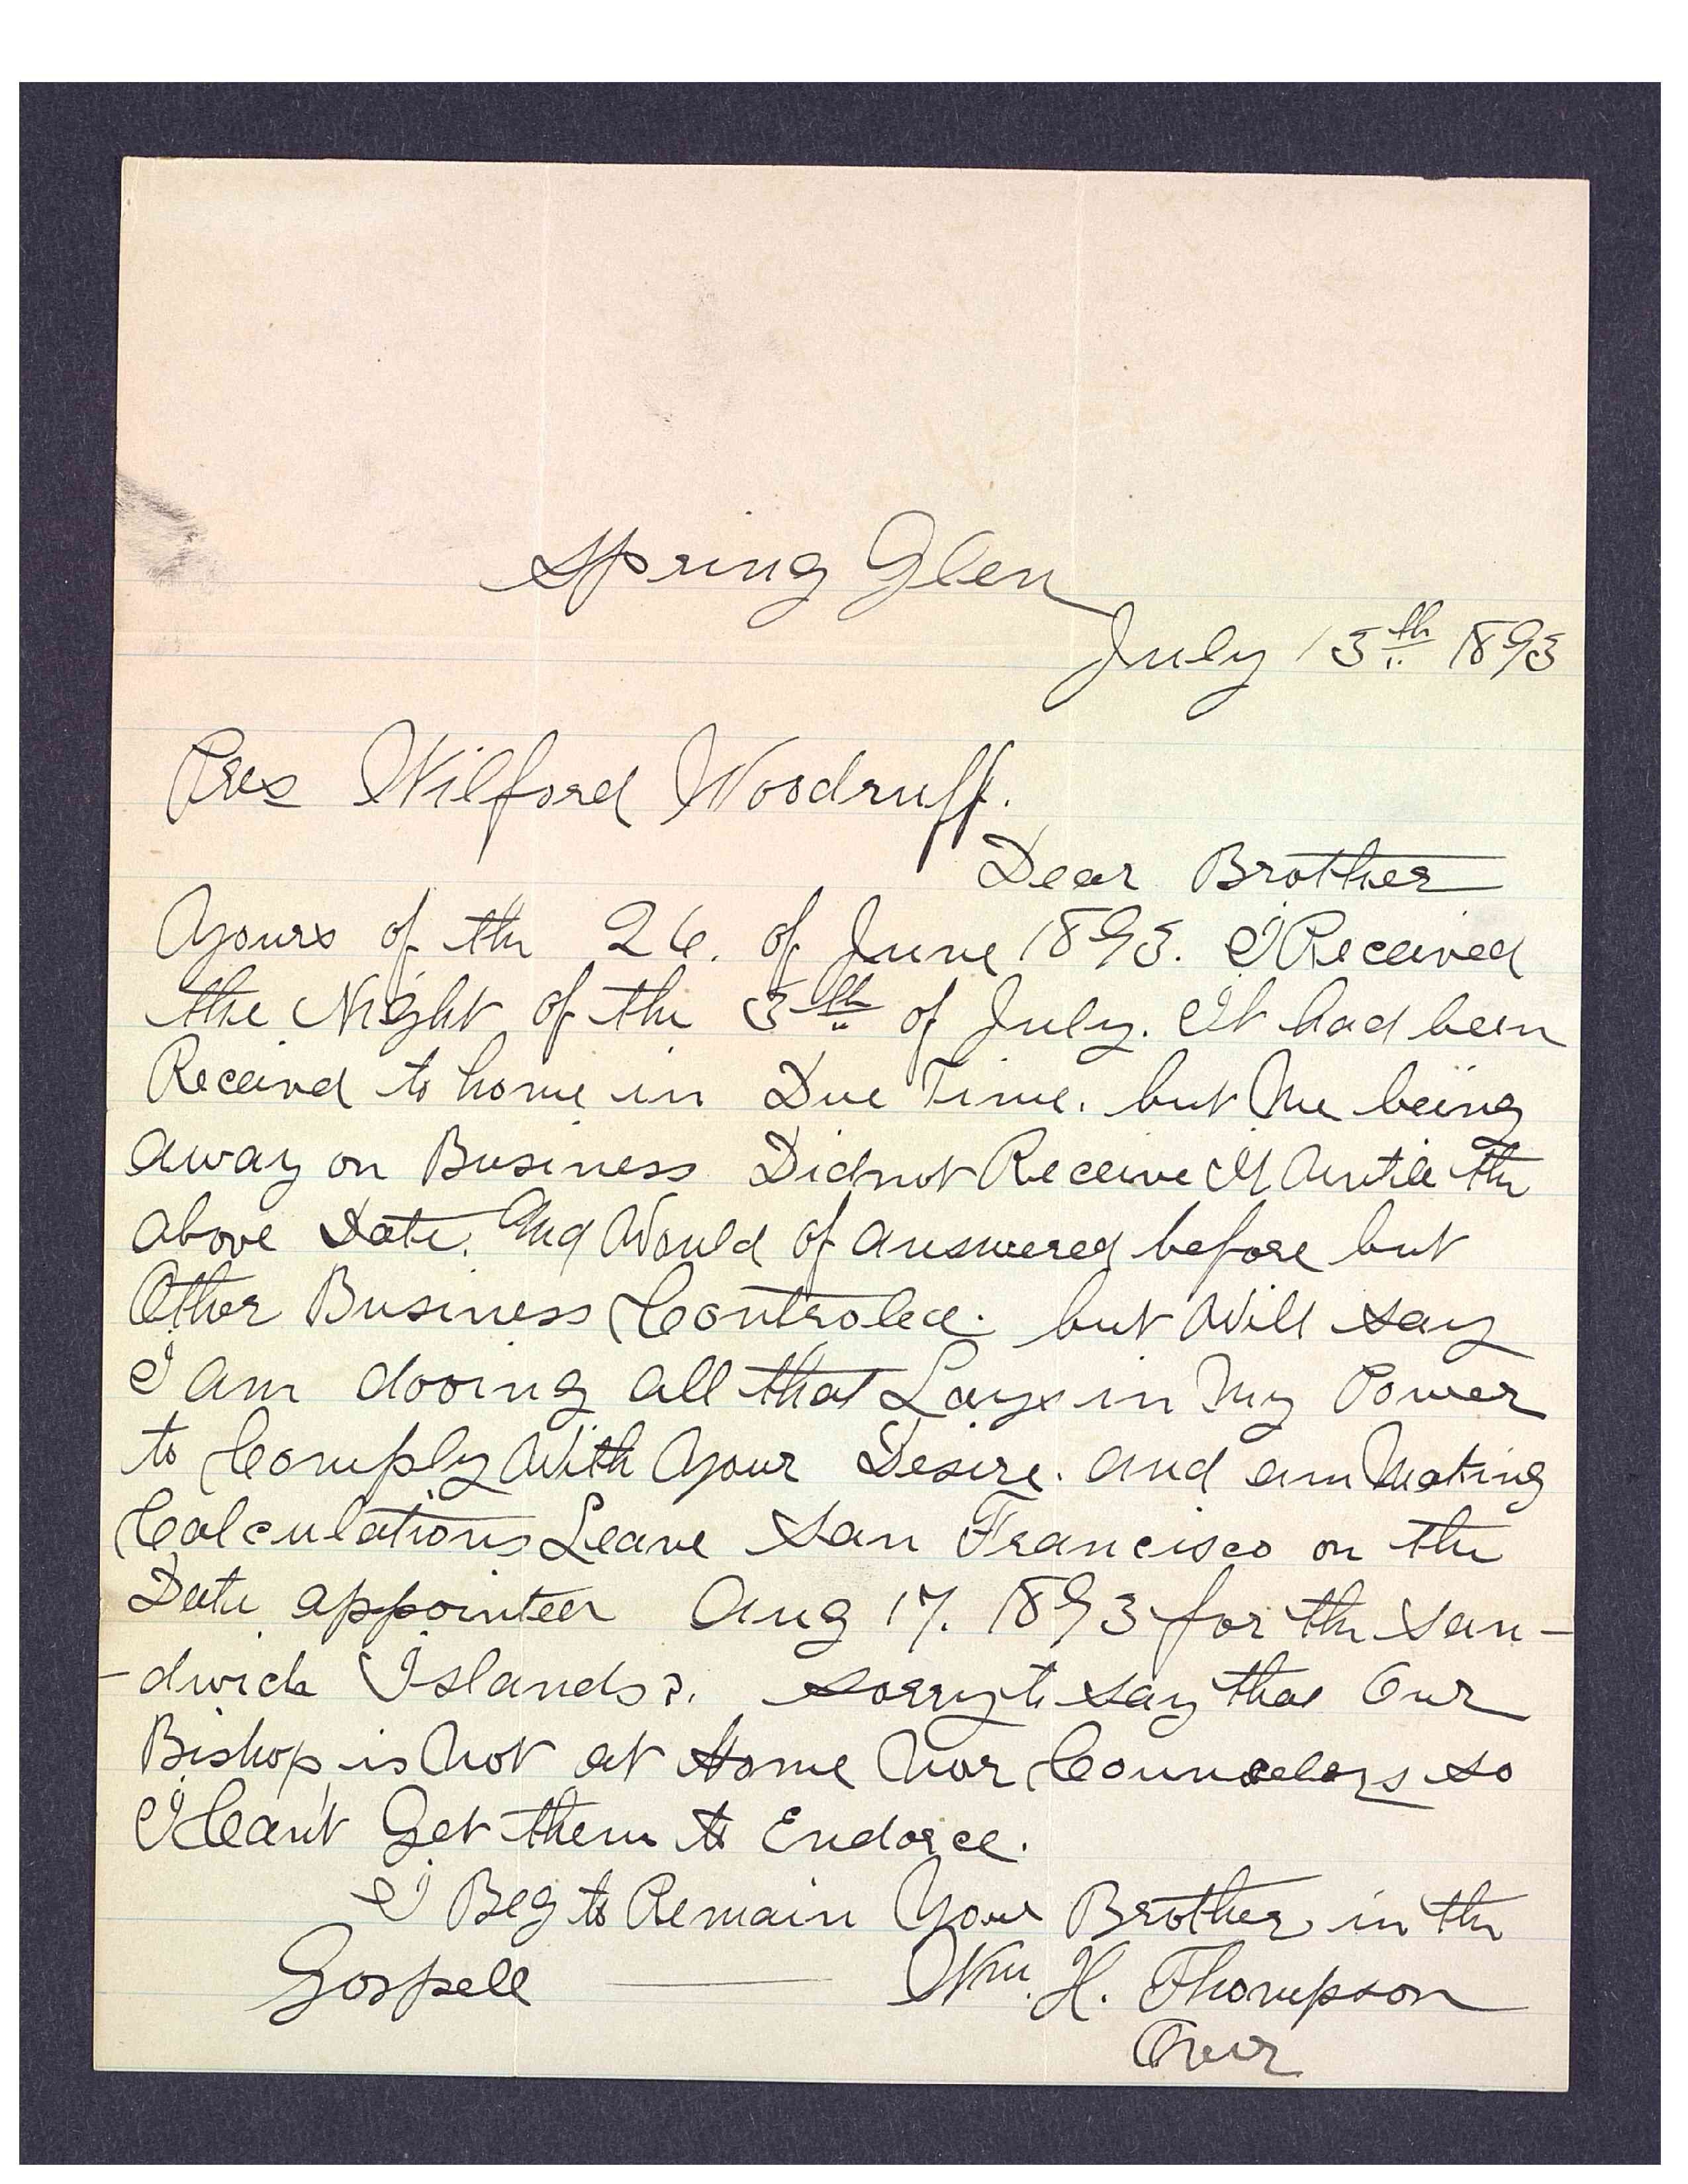 Spring Glen
July 13th 1893
Pres Wilford Woodruff.
Dear Brother
Yours of the 26. of June 1893. I Received
the Night of the 5th of July. It had been
Receivd to home in Due Time. but Me being
away on Business Didnot Receive It Untill the
above Date. And Would of answered before but
Other Business Controled. but Will say
I am dooing all that Lays in My Power
to Comply With Your Desire. and am Making
Calculations Leave San Francisco on the
Date appointed Aug 17. 1893 for the San-
-dwich Islands. sorry to say that Our
Bishop is Not at Home Nor Counselers so
I Can't Get them to Endorce.
I Beg to Remain Your Brother in the
Gospell — Wm. H. Thompson
Over